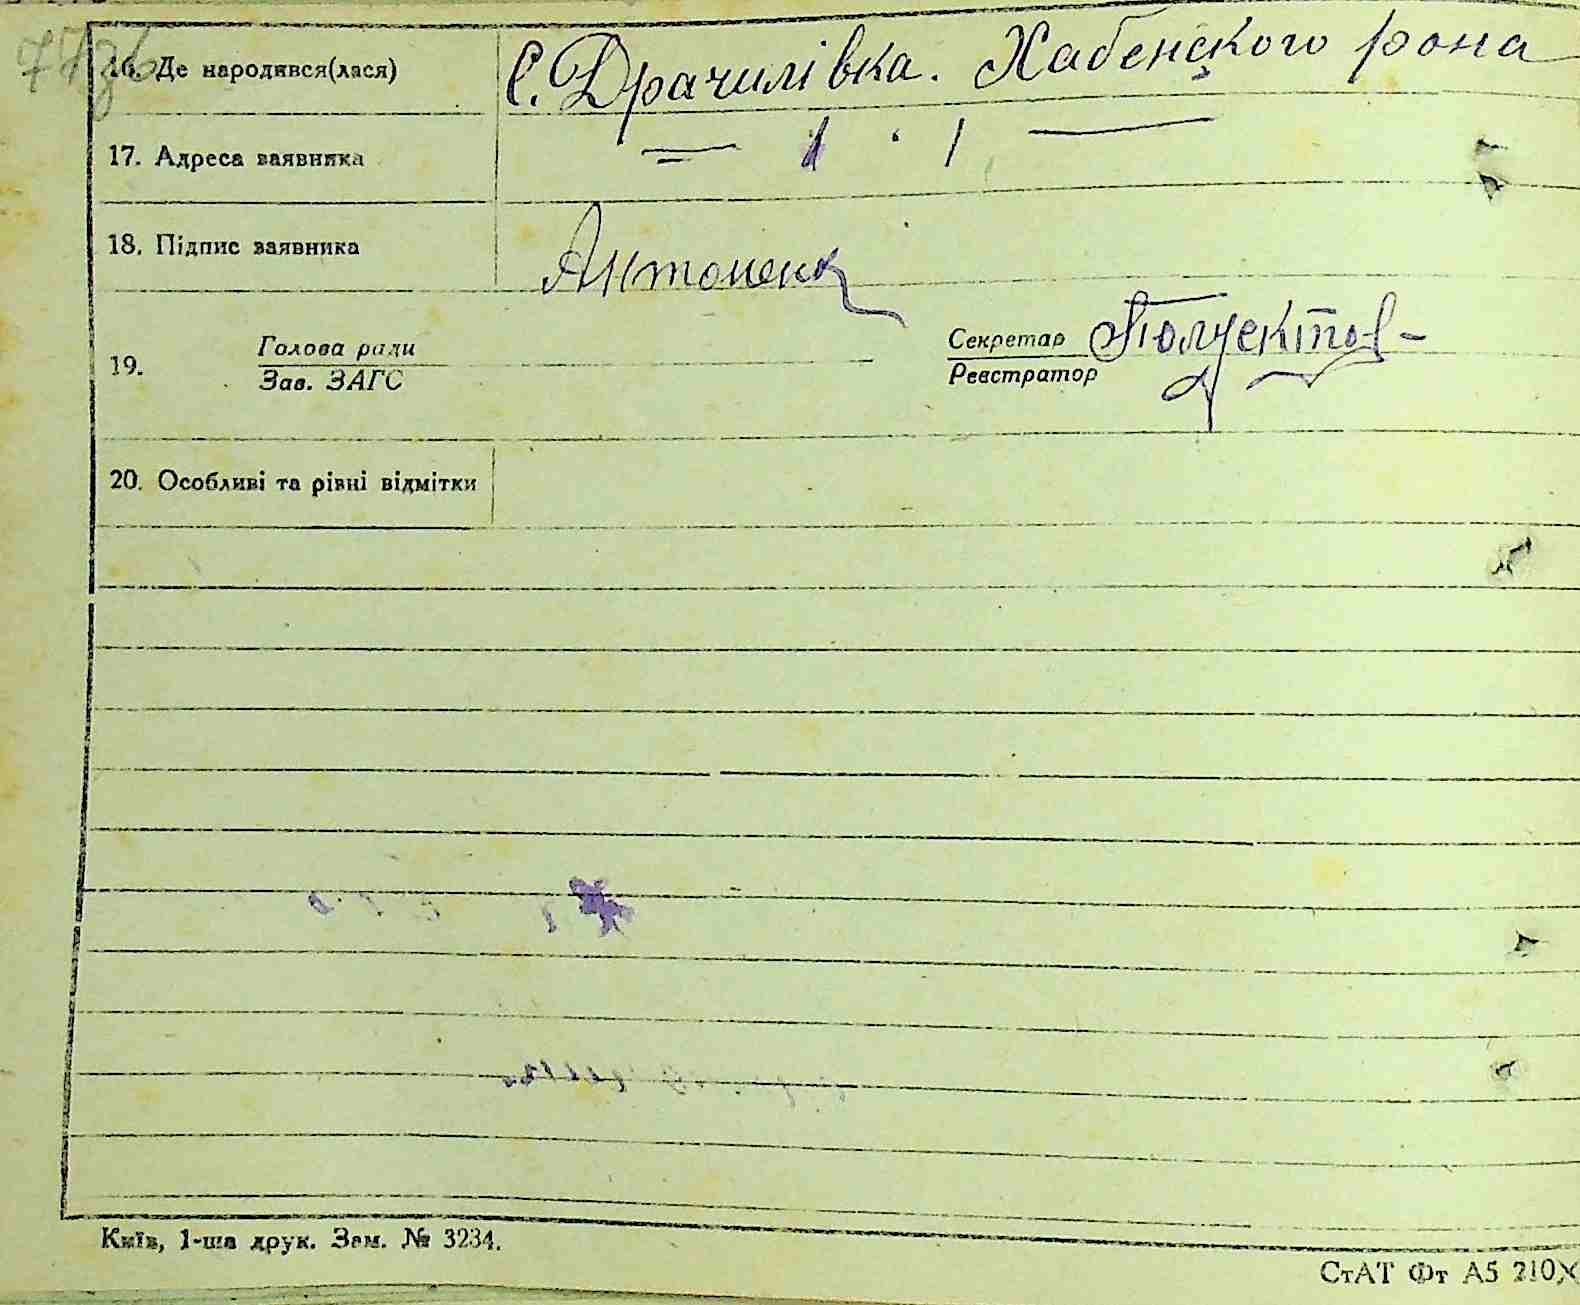 77зв
16. Де народився(лася) С. Драчилівка. Хабенского рона
17. Адреса заявника — 1 ' 1 —
18. Підпис заявника Антоненк
19. Голова ради Секретар Полуектов
Зав. ЗАГС Реєстратор
20. Особливі та різні відмітки
Київ, 1-ша друк. Зам. № 3234.
СтАТ Фт А5 210X